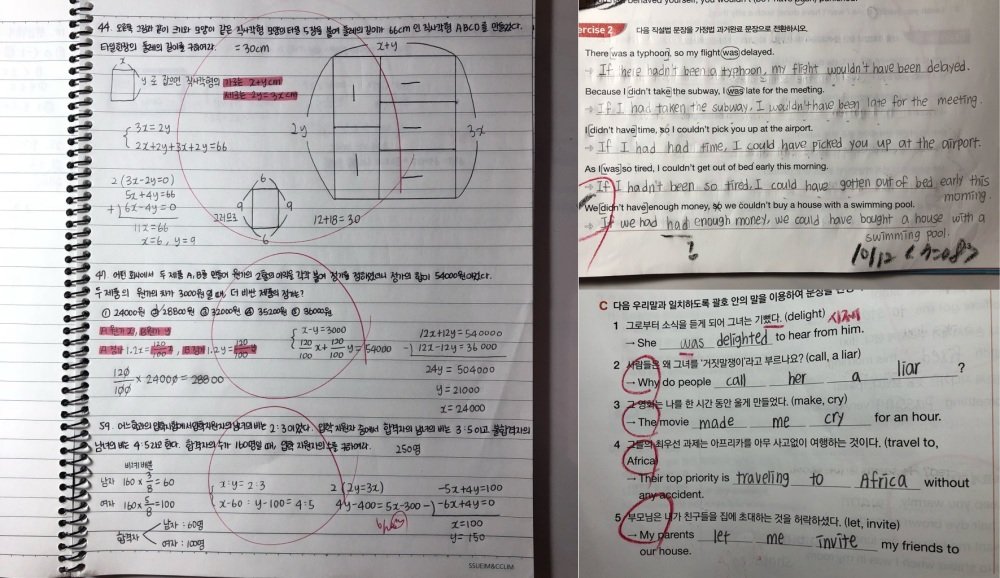 44. 오른쪽 그림과 같이 크기와 모양이 같은 직사각형 모양의 타일 5장을 붙여 둘레의 길이가 66cm인 직사각형 ABCD를 만들었다.
타일 한장의 둘레의 길이를 구하여라. = 30cm
x
y 로 잡으면 직사각형의 가로는 x+y cm
세로는 2y = 3x cm
3x=2y
2x+2y+3x+2y=66
2(3x-2y=0)
5x+4y=66
+) 6x-4y=0
11x=66
x=6, y=9
그러므로
6
9
9
6
12+18=30
x+y
2y
3x
47. 어떤 회사에서 두 제품 A, B를 만들어 원가의 2할의 이익을 각각 붙여 정가를 정하였더니 정가의 합이 54000원이었다.
두 제품의 원가의 차가 3000원일 때, 더 비싼 제품의 정가는?
① 24000원 ② 28800원 ③ 32000원 ④ 35200원 ⑤ 36000원
A원가 x, B원가 y
A정가 1.2x = 120/100 x, B정가 1.2y = 120/100 y
120/100 × 24000 = 28800
x-y=3000
120/100 x + 120/100 y = 54000
12x+12y=540000
-) 12x-12y=36000
24y=504000
y=21000
x=24000
59. 어느 학교의 입학시험에서 입학지원자의 남녀의 비는 2:3이었다. 입학 지원자 중에서 합격자의 남녀의 비는 3:5이고 불합격자의
남녀의 비는 4:5라고 한다. 합격자의 수가 160명일 때, 입학 지원자의 수를 구하여라. 250명
비례배분
남자 160×3/8=60
여자 160×5/8=100
합격자
남자 : 60명
여자 : 100명
x:y=2:3
x-60:y-100=4:5
2(2y=3x)
4y-400=5x-300
-5x+4y=100
-) -6x+4y=0
x=100
y=150
SSUEIM&CCLIM
Exercise 2 다음 직설법 문장을 가정법 과거완료 문장으로 전환하시오.
There was a typhoon, so my flight was delayed.
→ If here hadn't been a typhoon, my flight wouldn't have been delayed.
Because I didn't take the subway, I was late for the meeting.
→ If I had taken the subway, I wouldn't have been late for the meeting.
I didn't have time, so I couldn't pick you up at the airport.
→ If I had had time, I could have picked you up at the airport.
As I was so tired, I couldn't get out of bed early this morning.
→ If I hadn't been so tired, I could have gotten out of bed early this
morning.
We didn't have enough money, so we couldn't buy a house with a swimming pool.
→ If we had had enough money, we could have bought a house with a
swimming pool.
?
C 다음 우리말과 일치하도록 괄호 안의 말을 이용하여
1 그로부터 소식을 듣게 되어 그녀는 기뻤다. (delight)
→ She was delighted to hear from him.
2 사람들은 왜 그녀를 '거짓말쟁이'라고 부르나요? (call, a liar)
→ Why do people call her a liar ?
3 그 영화는 나를 한 시간 동안 울게 만들었다. (make, cry)
→ The movie made me cry for an hour.
4 그들의 최우선 과제는 아프리카를 아무 사고없이 여행하는 것이다. (travel to,
Africa)
→ Their top priority is traveling to Africa without
any accident.
5 부모님은 내가 친구들을 집에 초대하는 것을 허락하셨다. (let, invite)
→ My parents let me invite my friends to
our house.